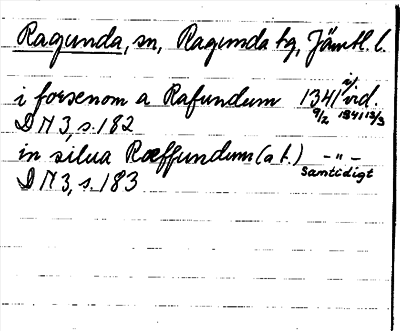 Ragunda, sn, Ragunda tg, Jämtl. l.
i forsenom a Rafundum 1341 i/ vid.
9/2 1341 13/3
DN 3, s. 182
in silua Ræffundum (a t.) – " –
Samtidigt
DN 3, s. 183